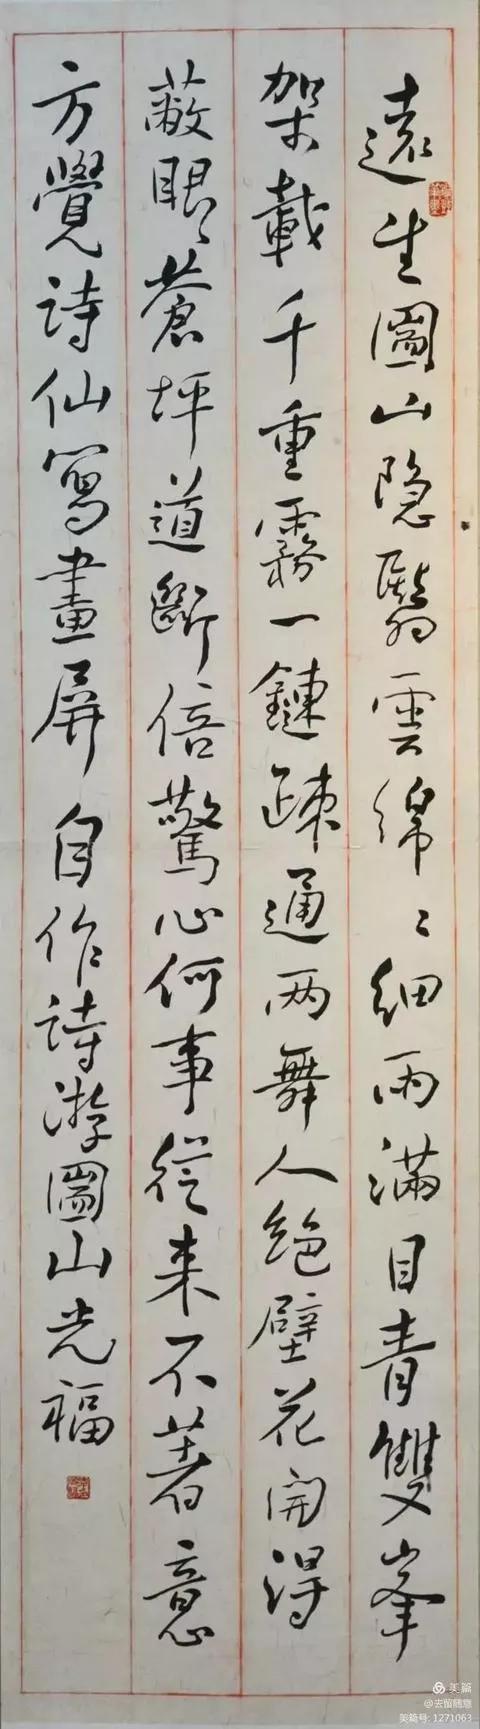 遠生圌山隐翳雲綿々细雨满目青雙峯
架載千重霧一鏈疎通两舞人絶壁花開得
蔽眼蒼坪道斷倍驚心何事從来不著意
方覺詩仙寫畫屏 自作詩游圌山光福
美篇
@去留随意
美篇号: 1271063